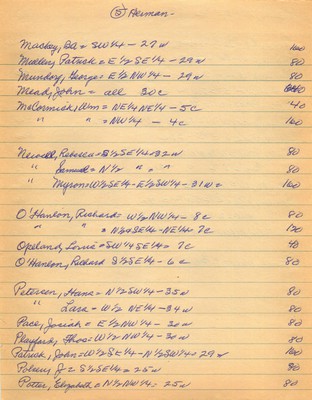 (5) Herman -
Mackey, Ba = SW¼ - 27w 160
Mullen, Patrick = E½SE¼ - 29w 80
Mundorf, George = E½NW¼ - 29w 80
Mead, John = all 30c 640
McCormick, Wm = NE¼NE¼ - 5c 40
" " = NW¼ - 4c 160
Newell, Rebecca = S½SE¼ - 32w 80
" Samuel = N½ " = " 80
" Myron = W½SE¼ - E½SW¼ - 31w = 160
O'Hanlon, Richard = W½NW¼ - 8c 80
" " = N½SE¼ - NE¼ 7c 120
Opeland, Louis = SW¼SE¼ = 7c 40
O'Hanlon, Richard S½SE¼ - 6c 80
Petersen, Hans = N½SW¼ - 35w 80
" Lars = W½ NE¼ - 34w 80
Pace, Josiah = E½NW¼ - 30w 80
Playford, Thos = W½NW¼ - 30w 80
Patrick, John = W½SE¼ - N½SW¼ = 29w 160
Polsen, J = S½SE¼ = 25w 80
Potter, Elizabeth = N½NW¼ = 25w 80